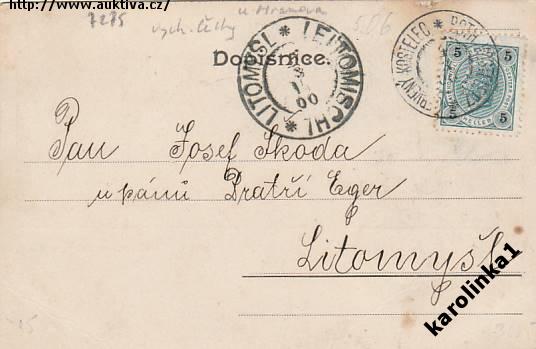 Zdroj: www.auktiva.cz/
7275
vých. Čechy
u Hronova
506
Dopisnice.
LITOMYŠL * LEITOMISCHL *
00
ČERVENÝ KOSTELEC * ROTH
5 5
5 5
HELLER
Pan Josef Škoda
u pánů Bratří Eger
Litomyšl
karolinka1